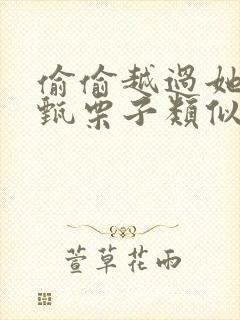 偷偷越過她
甄栗子類似
萱草花雨